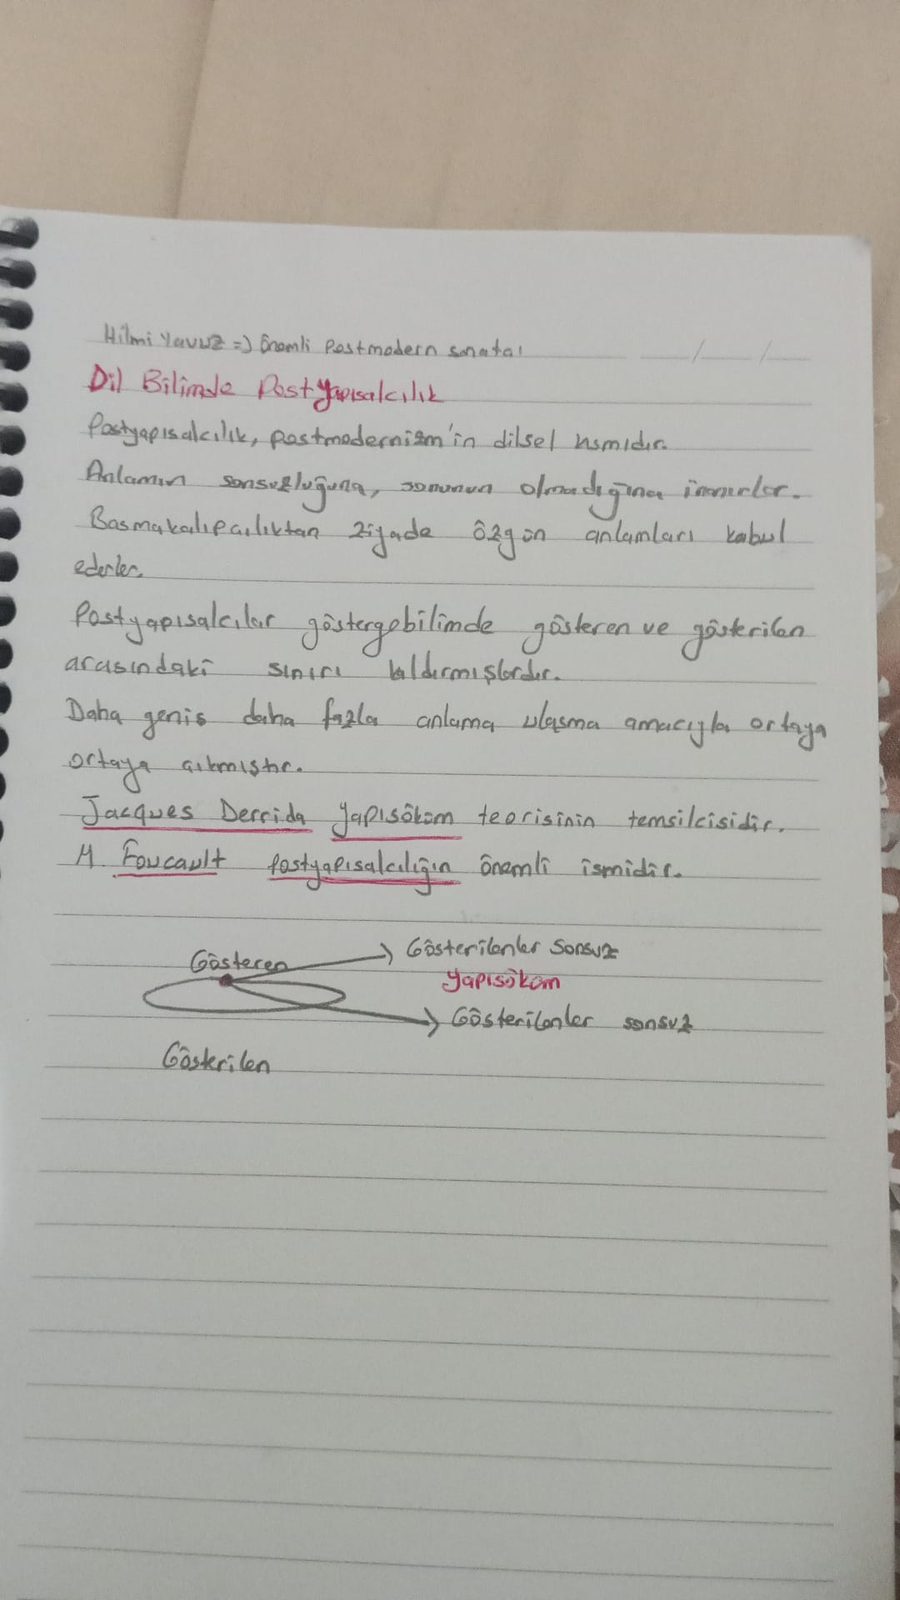 Hilmi Yavuz => Önemli Postmodern sanatçı
Dil Bilimde Postyapısalcılık
Postyapısalcılık, postmodernizm'in dilsel kısmıdır.
Anlamın sonsuzluğuna, sonunun olmadığına inanırlar.
Basmakalıpçılıktan ziyade özgün anlamları kabul
ederler.
Postyapısalcılar göstergebilimde gösteren ve gösterilen
arasındaki sınırı kaldırmışlardır.
Daha geniş daha fazla anlama ulaşma amacıyla ortaya
ortaya çıkmıştır.
Jacques Derrida yapısöküm teorisinin temsilcisidir.
M. Foucault postyapısalcılığın önemli ismidir.
Gösteren Gösterilenler sonsuz
yapısöküm
Gösterilenler sonsuz
Gösterilen